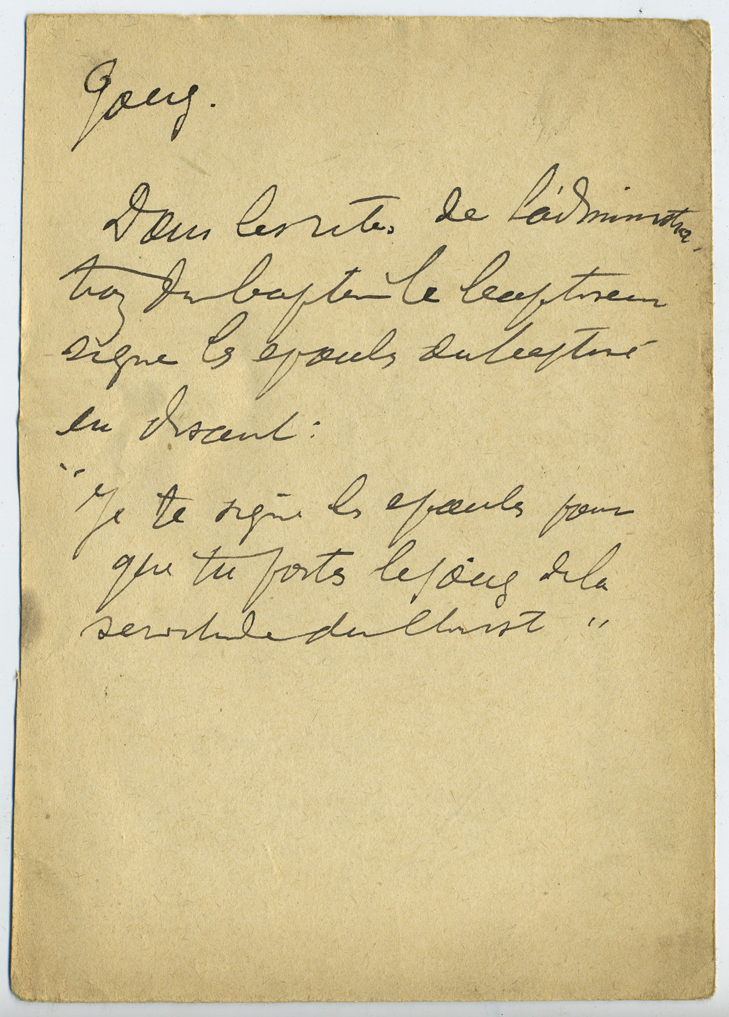 Joug.
Dans les rites de l'administra-
tion du baptême le baptiseur
signe les épaules du baptisé
en disant :
"Je te signe les épaules pour
que tu portes le joug de la
servitude du Christ"